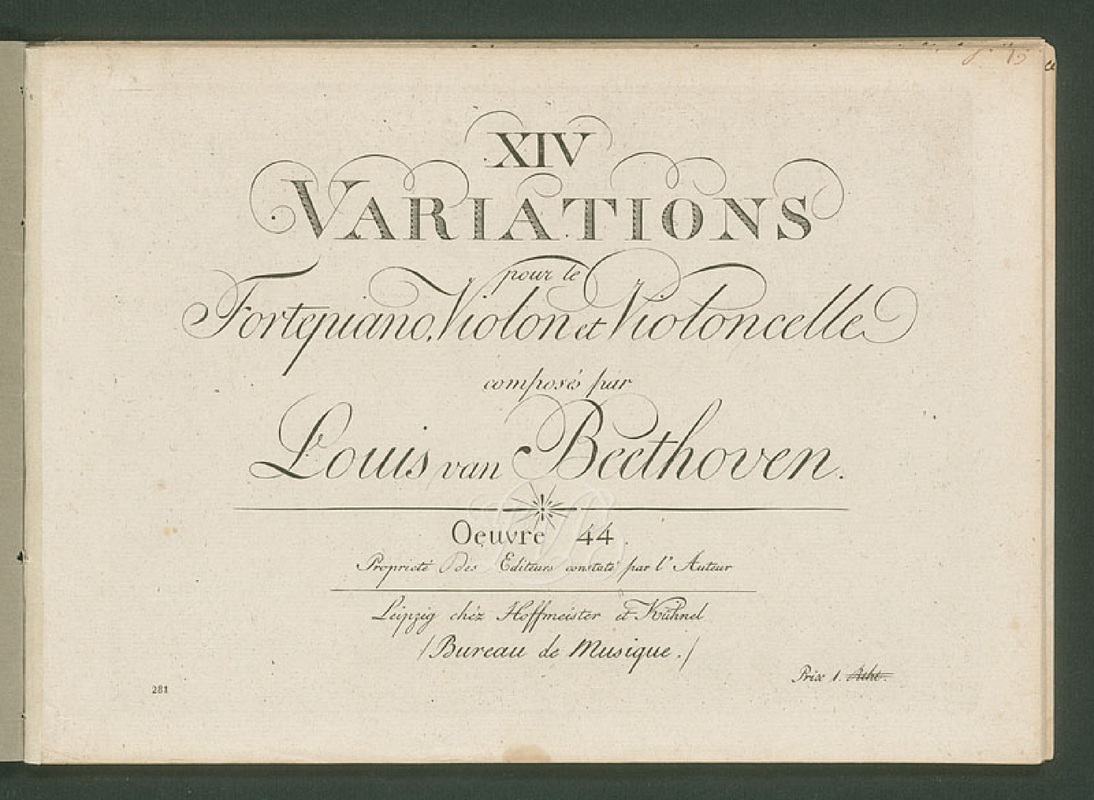 XIV
VARIATIONS
pour le
Fortepiano, Violon et Violoncelle
composés par
Louis van Beethoven.
Oeuvre 44.
Proprieté des Editeurs constaté par l'Auteur
Leipzig chéz Hoffmeister et Kühnel
/Bureau de Musique./
Prix 1. Rthl.
281